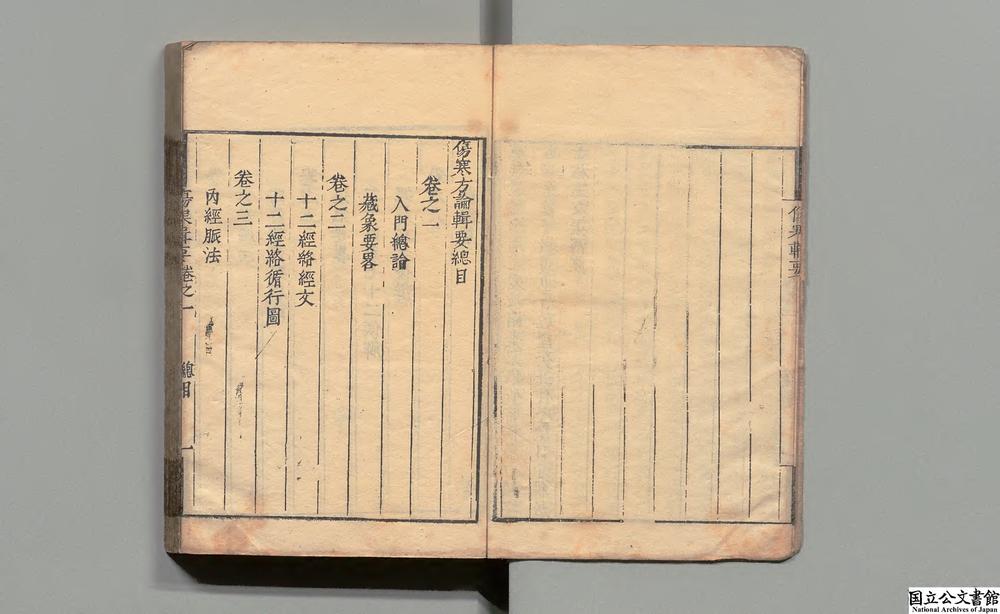 傷寒輯要
傷寒方論輯要總目
卷之一
入門總論
藏象要畧
卷之二
十二經絡經文
十二經絡循行圖
卷之三
內經脈法
傷寒輯要卷之一 總目 一
国立公文書館
National Archives of Japan